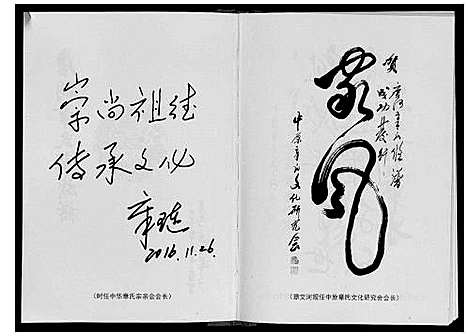 崇尚祖德
传承文化
章
2016.11.26.
(时任中华章氏宗亲会会长)
贺
章氏族谱
成功发行
家风
中原章氏文化研究会
文河现任中原章氏文化研究会会长)